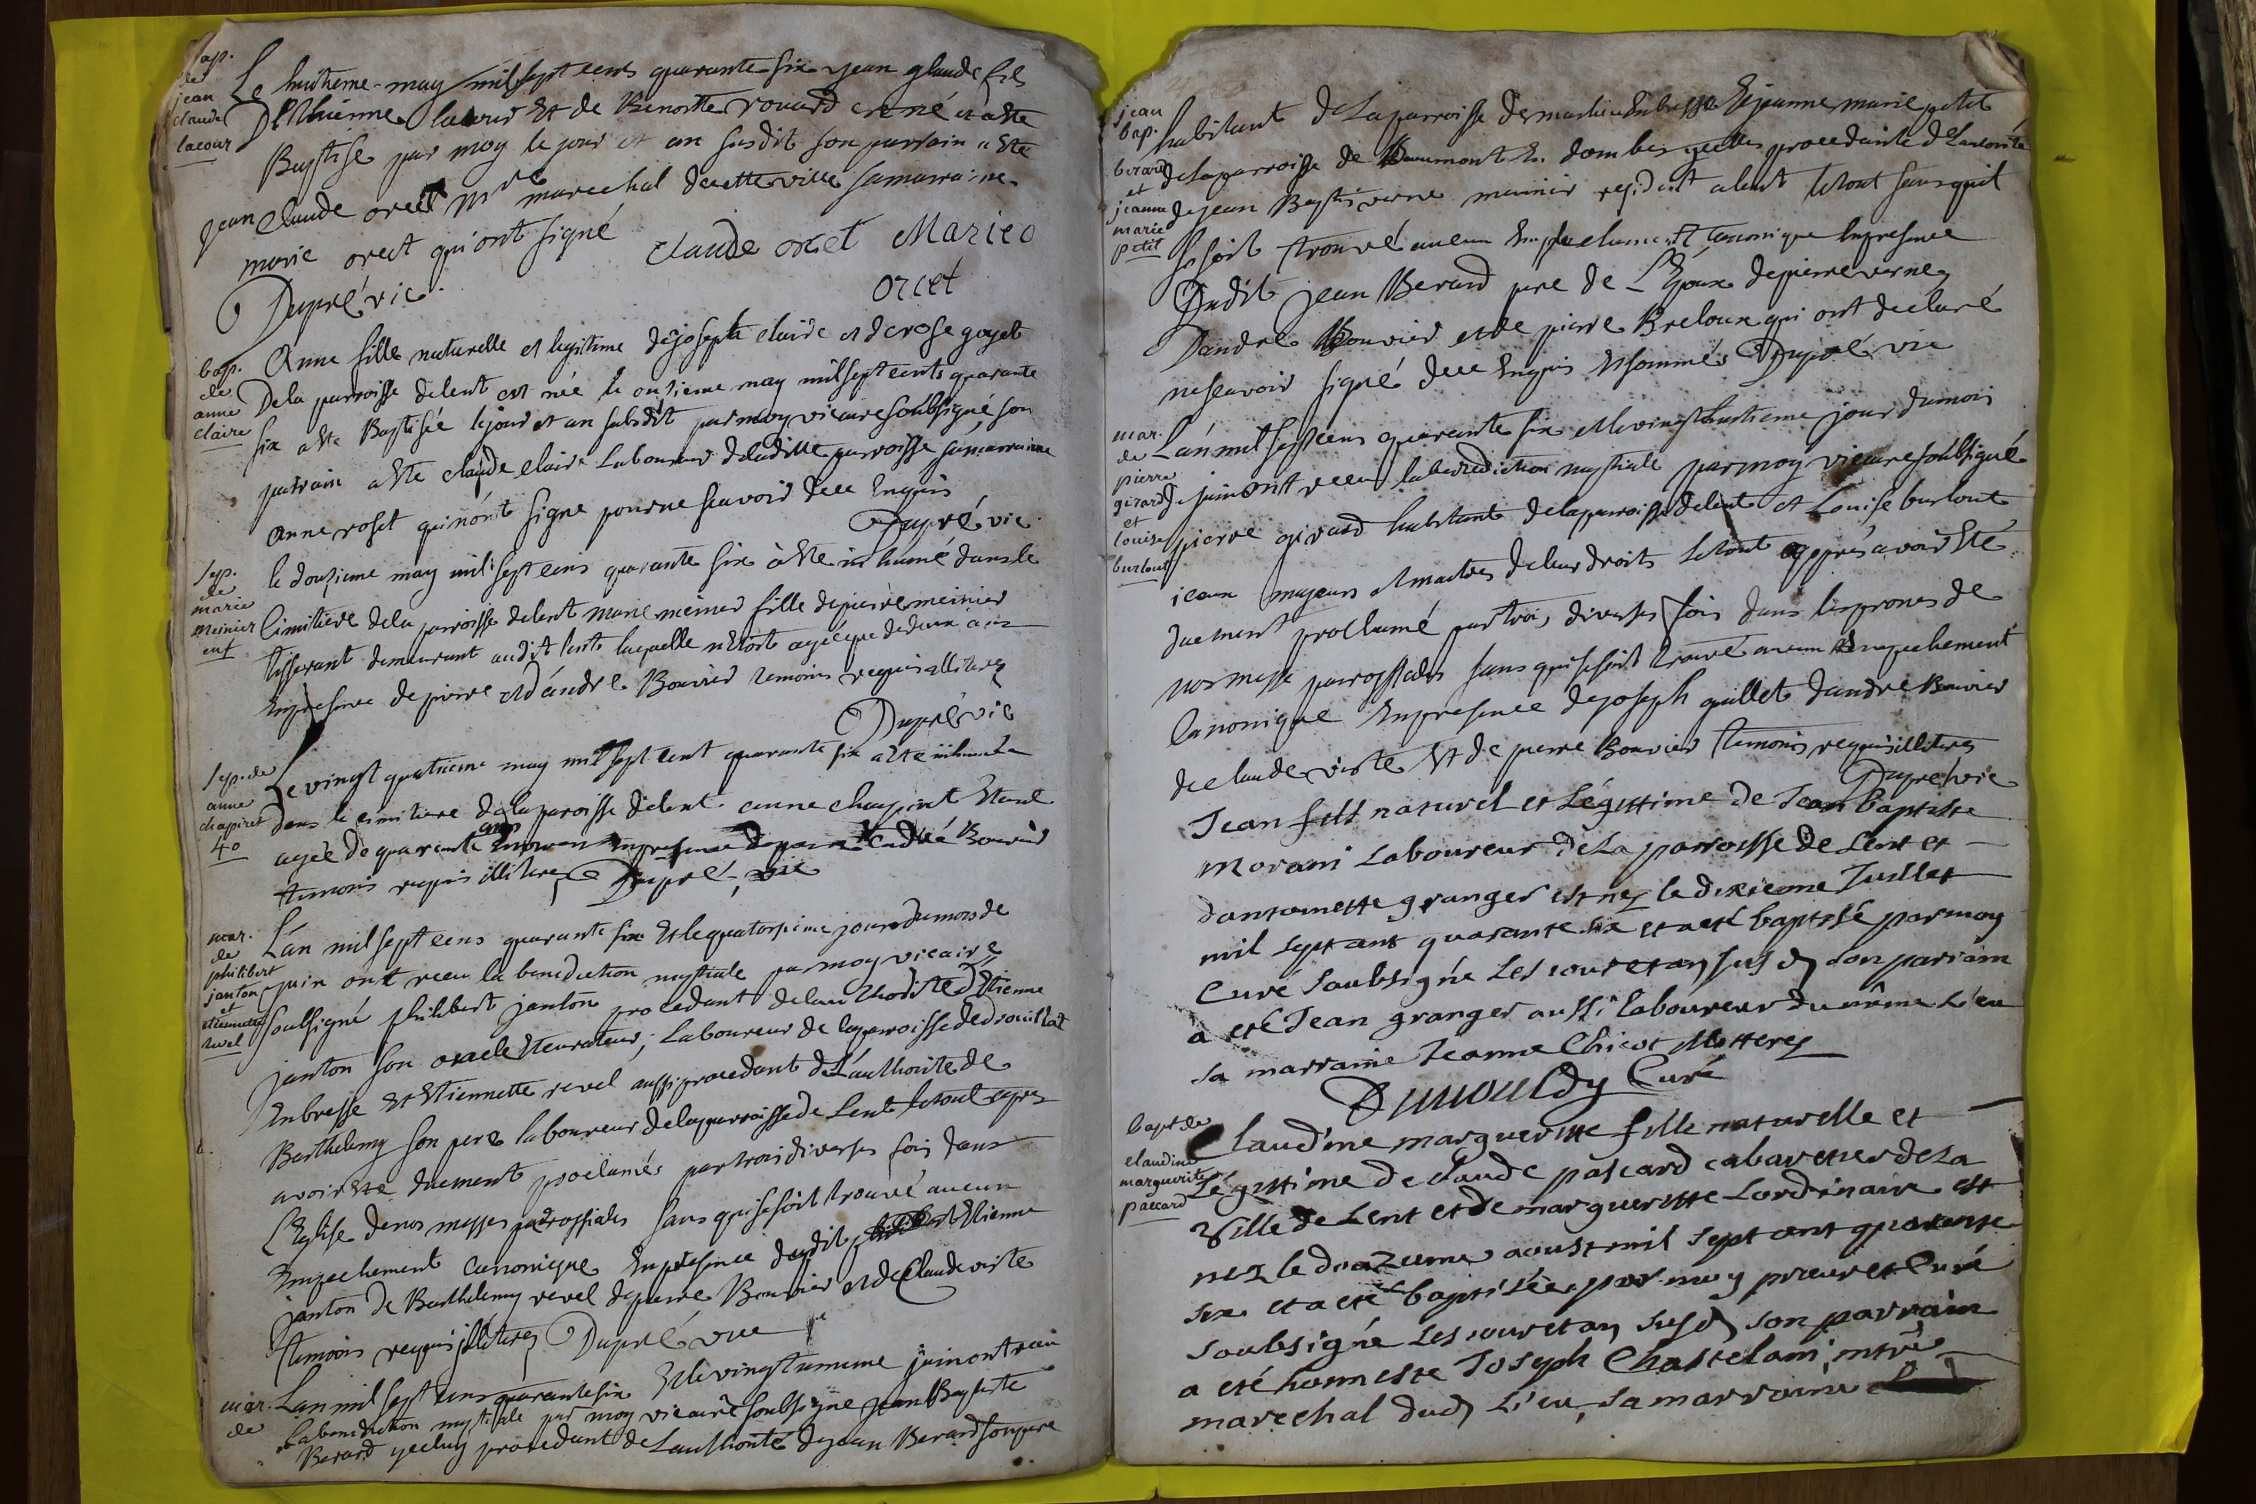 bap.
de
jean
claude
lacour
Le huitieme may mil sept cens quarante six jean glaude fils
D'Ethienne lacour Et de Benoitte rouard est né et a ete
Baptise par moy le jour et an susdit son parrain a ete
jean claude orcet Mre marechal de cette ville sa marraine
marie orcet qui ont signé claude orcet Marie
orcet
Dupré vic.
bap.
de
anne
claire
Anne fille naturelle et legitime de joseph claire et de rose goyet
De la parroisse de lent est née le onzieme may mil sept cents quarante
six a ete Baptisée le jour et an susdit par moy vicaire soubsigné son
parrain a ete claude claire Laboureur de laditte parroisse sa marrainne
Anne roset qui n'ont signe pour ne scavoir de ce Enquis
Dupré vic.
sep.
de
marie
meinier
enf
le douzieme may mil sept cens quarante six à ete inhumé dans le
Cimitiere de la parroisse de lent marie meinier fille de pierre meinier
tisserant demeurant audit lent laquelle n'Etoit agée que de deux ans
En presence de pierre et d'andre Bouvier temoins requis illiteres
Dupré vic
sep. de
anne
chapiret
40
Le vingt quatrieme may mil sept cent quarante six a ete inhumée
dans le cimitiere de la paroisse de lent anne chapiret Etant
agée de quarante ans En presence de andré Bouvier
temoins requis illiteres Dupré, vic
mar.
de
philibert
janton
et
etiennette
revel
L'an mil sept cens quarante six Et le quatorzieme jour du mois de
juin ont recu la benediction nuptiale par moy vicaire
soubsigné philibert janton procedant de l'authorité d'Etienne
janton son oncle Et curateur, laboureur de la parroisse de drouillat
En bresse Et Etiennette revel aussi procedant de L'authorité de
Berthelemy son pere laboureur de la parroisse de Lent le tout apres
avoir ete duement proclamés par trois diverses fois dans
L'Eglise de nos messes parrossiales sans qui se soit trouvé aucun
Empechement canonique En presence dudit Etienne
janton de Barthelemy revel de pierre Bouvier et de Claude viste
temoins requis illiteres Dupré vic
mar.
de
L'an mil sept cens quarante six Et le vingt unieme juin ont recu
La benediction nuptiale par moy vicaire soubsigne jean Baptiste
Berard yceluy procedant de L'authorité de jean Berard son pere
jean
bap.
berard
et
jeanne
marie
petit
habitant de La parroisse de En bresse Et jeanne marie petit
de la parroisse de Beaumont En dombes ycelle procedante de L'autorité
de jean Baptiste verne meunier resident a lent le tout sans qu'il
se soit trouvé aucun Empechement Canonique En presence
Dudit jean Berard pere de L'Epoux de pierre verne
D'andre Bouvier et de pierre Breloux qui ont declaré
ne scavoir signé de ce Enquis Et sommés Dupré vic
mar.
de
pierre
girard
et
louise
burlout
L'an mil sept cens quarante six et le vingt huitieme jour du mois
de juin ont recu la benediction nuptiale par moy vicaire soubsigné
pierre girard habitant de la parroisse de lent et Louise burlout
iceux majeurs Et maitres de leur droits le tout apprés avoir Eté
duement proclamé par trois diverses fois dans les prones de
nos messe parrossiales sans qui se soit trouvé aucun Empechement
Canonique En presence de joseph guillet d'andre Bouvier
de claude viste Et de pierre Bouvier temoins requis illiteres
Dupré vic
Jean fils naturel et Légittime de Jean baptiste
Morani Laboureur de La parroisse de Lent et
dantoinette granger est nez le dixieme Juillet
mil sept cent quarante six et a eté baptisé par moy
Curé soubsigné Les jour et an susd son parrain
a eté Jean granger aussi Laboureur du même Lieu
sa marraine Jeanne Chicot illitterez
Dumouldy Curé
bapt. de
claudine
marguerite
paccard
Claudine margueritte fille naturelle et
Légittime de claude pascard cabaretier de La
Ville de Lent et de margueritte Lordinaire est
nez le douzieme aoust mil sept cent quarente
six et a eté baptisée par moy prieur et Curé
soubsigné Les jour et an susd son parrain
a eté honneste Joseph Chastelain mtre
marechal dud Lieu, sa marraine